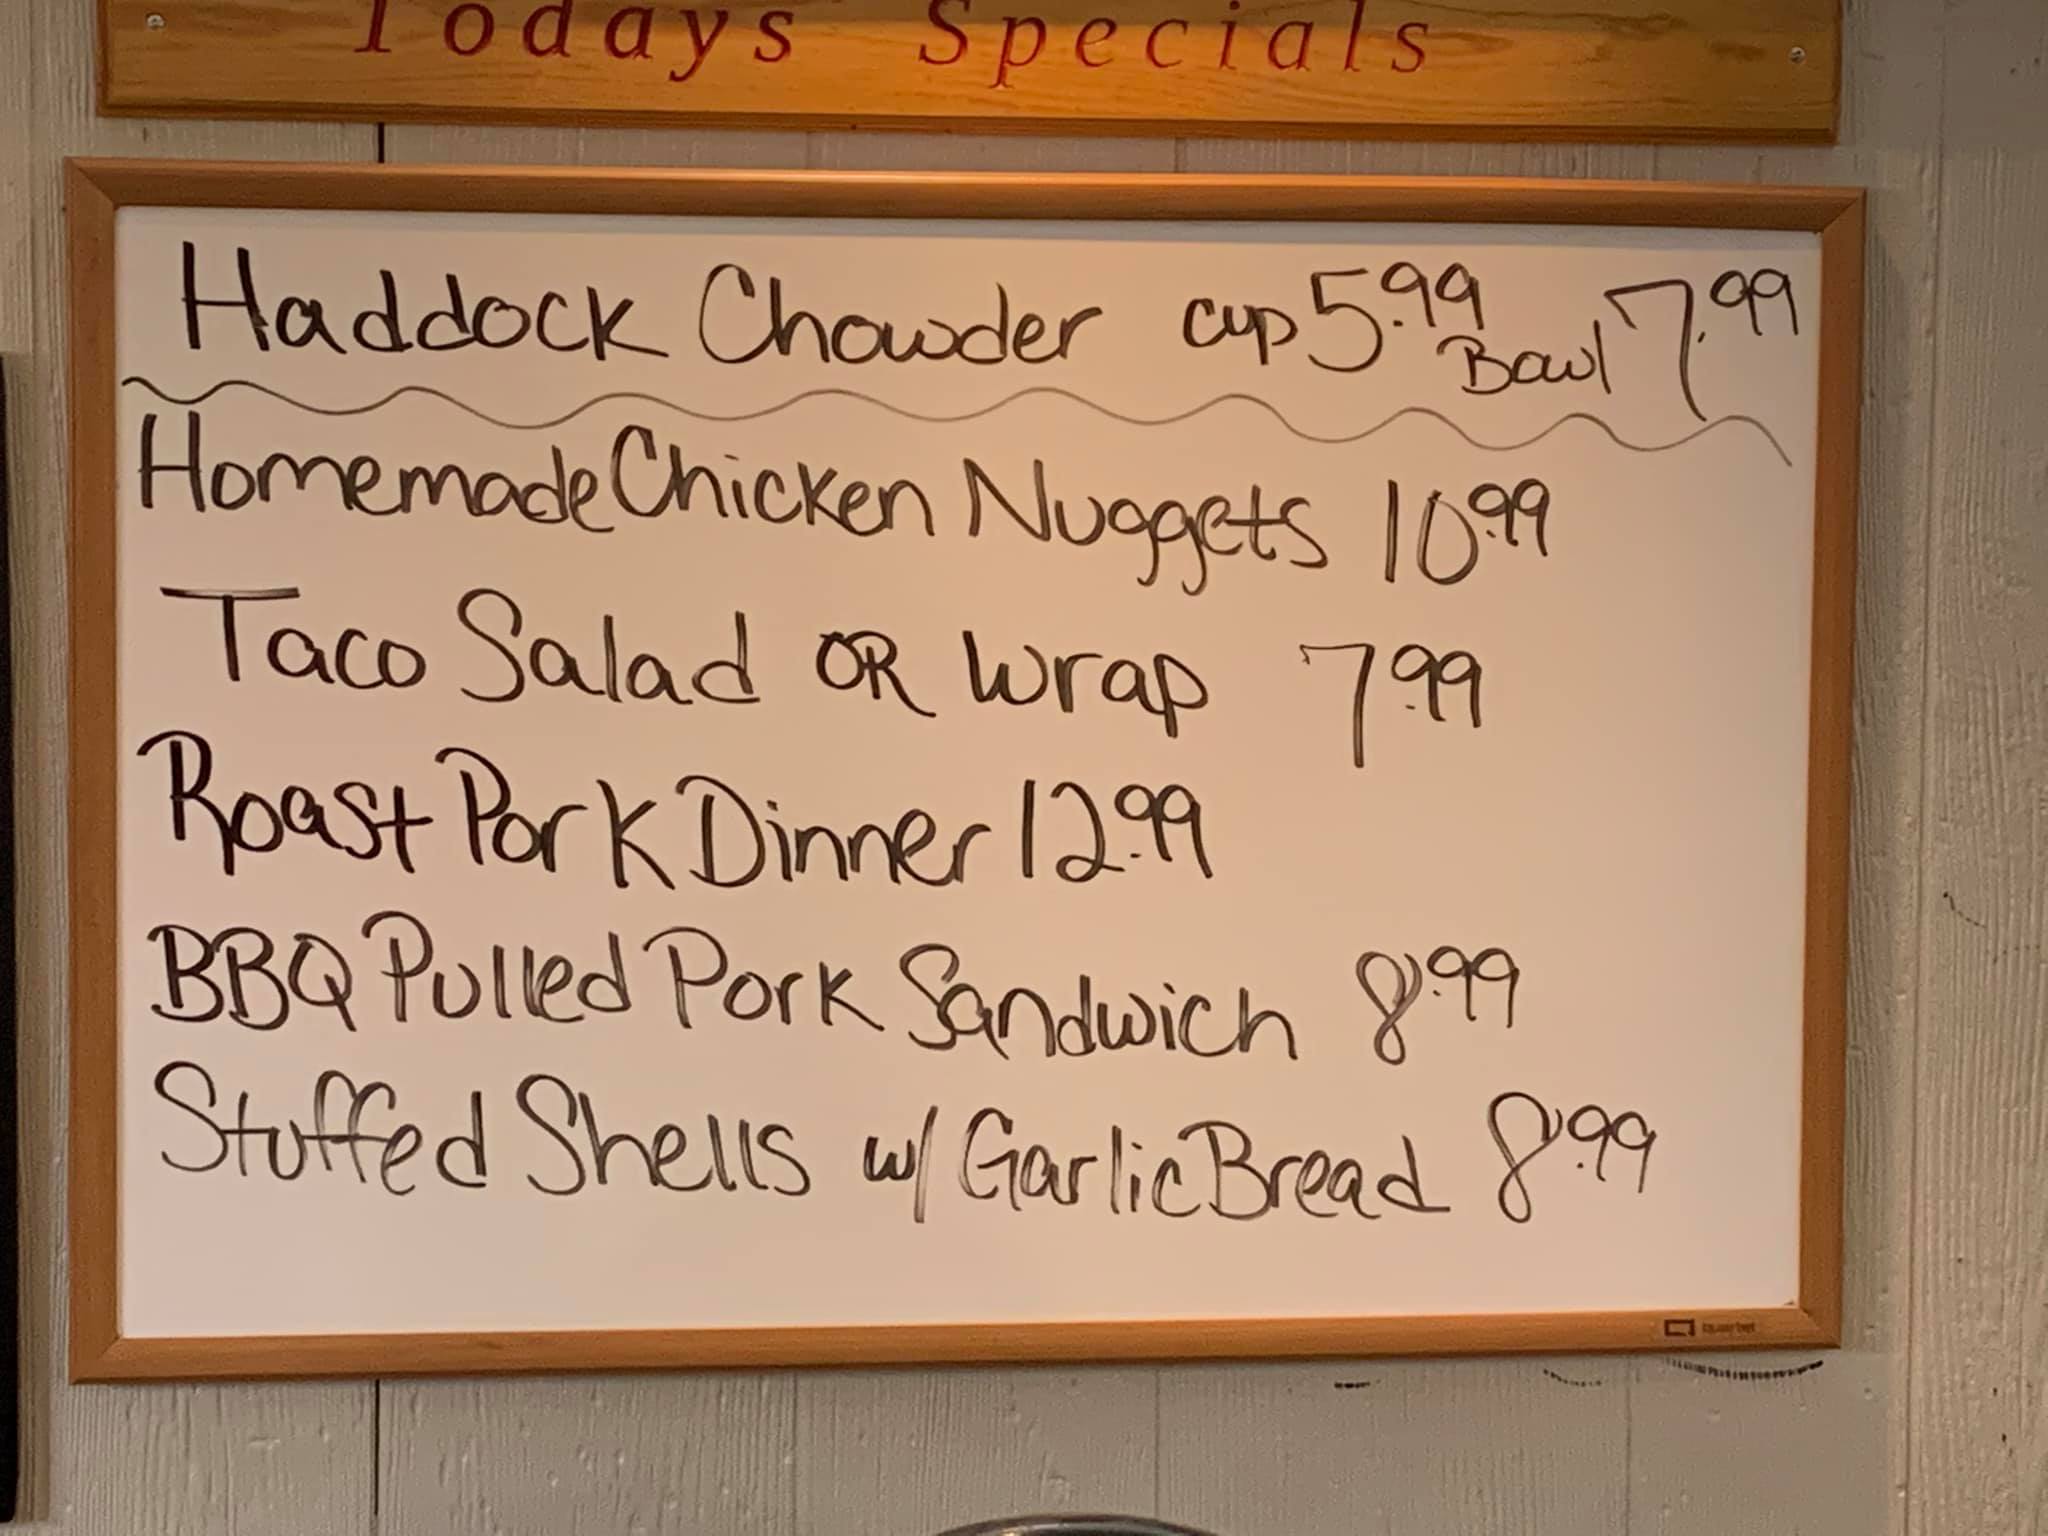 Todays Specials
Haddock Chowder cup 5.99 Bowl 7.99
Homemade Chicken Nuggets 10.99
Taco Salad OR Wrap 7.99
Roast Pork Dinner 12.99
BBQ Pulled Pork Sandwich 8.99
Stuffed Shells w/ Garlic Bread 8.99